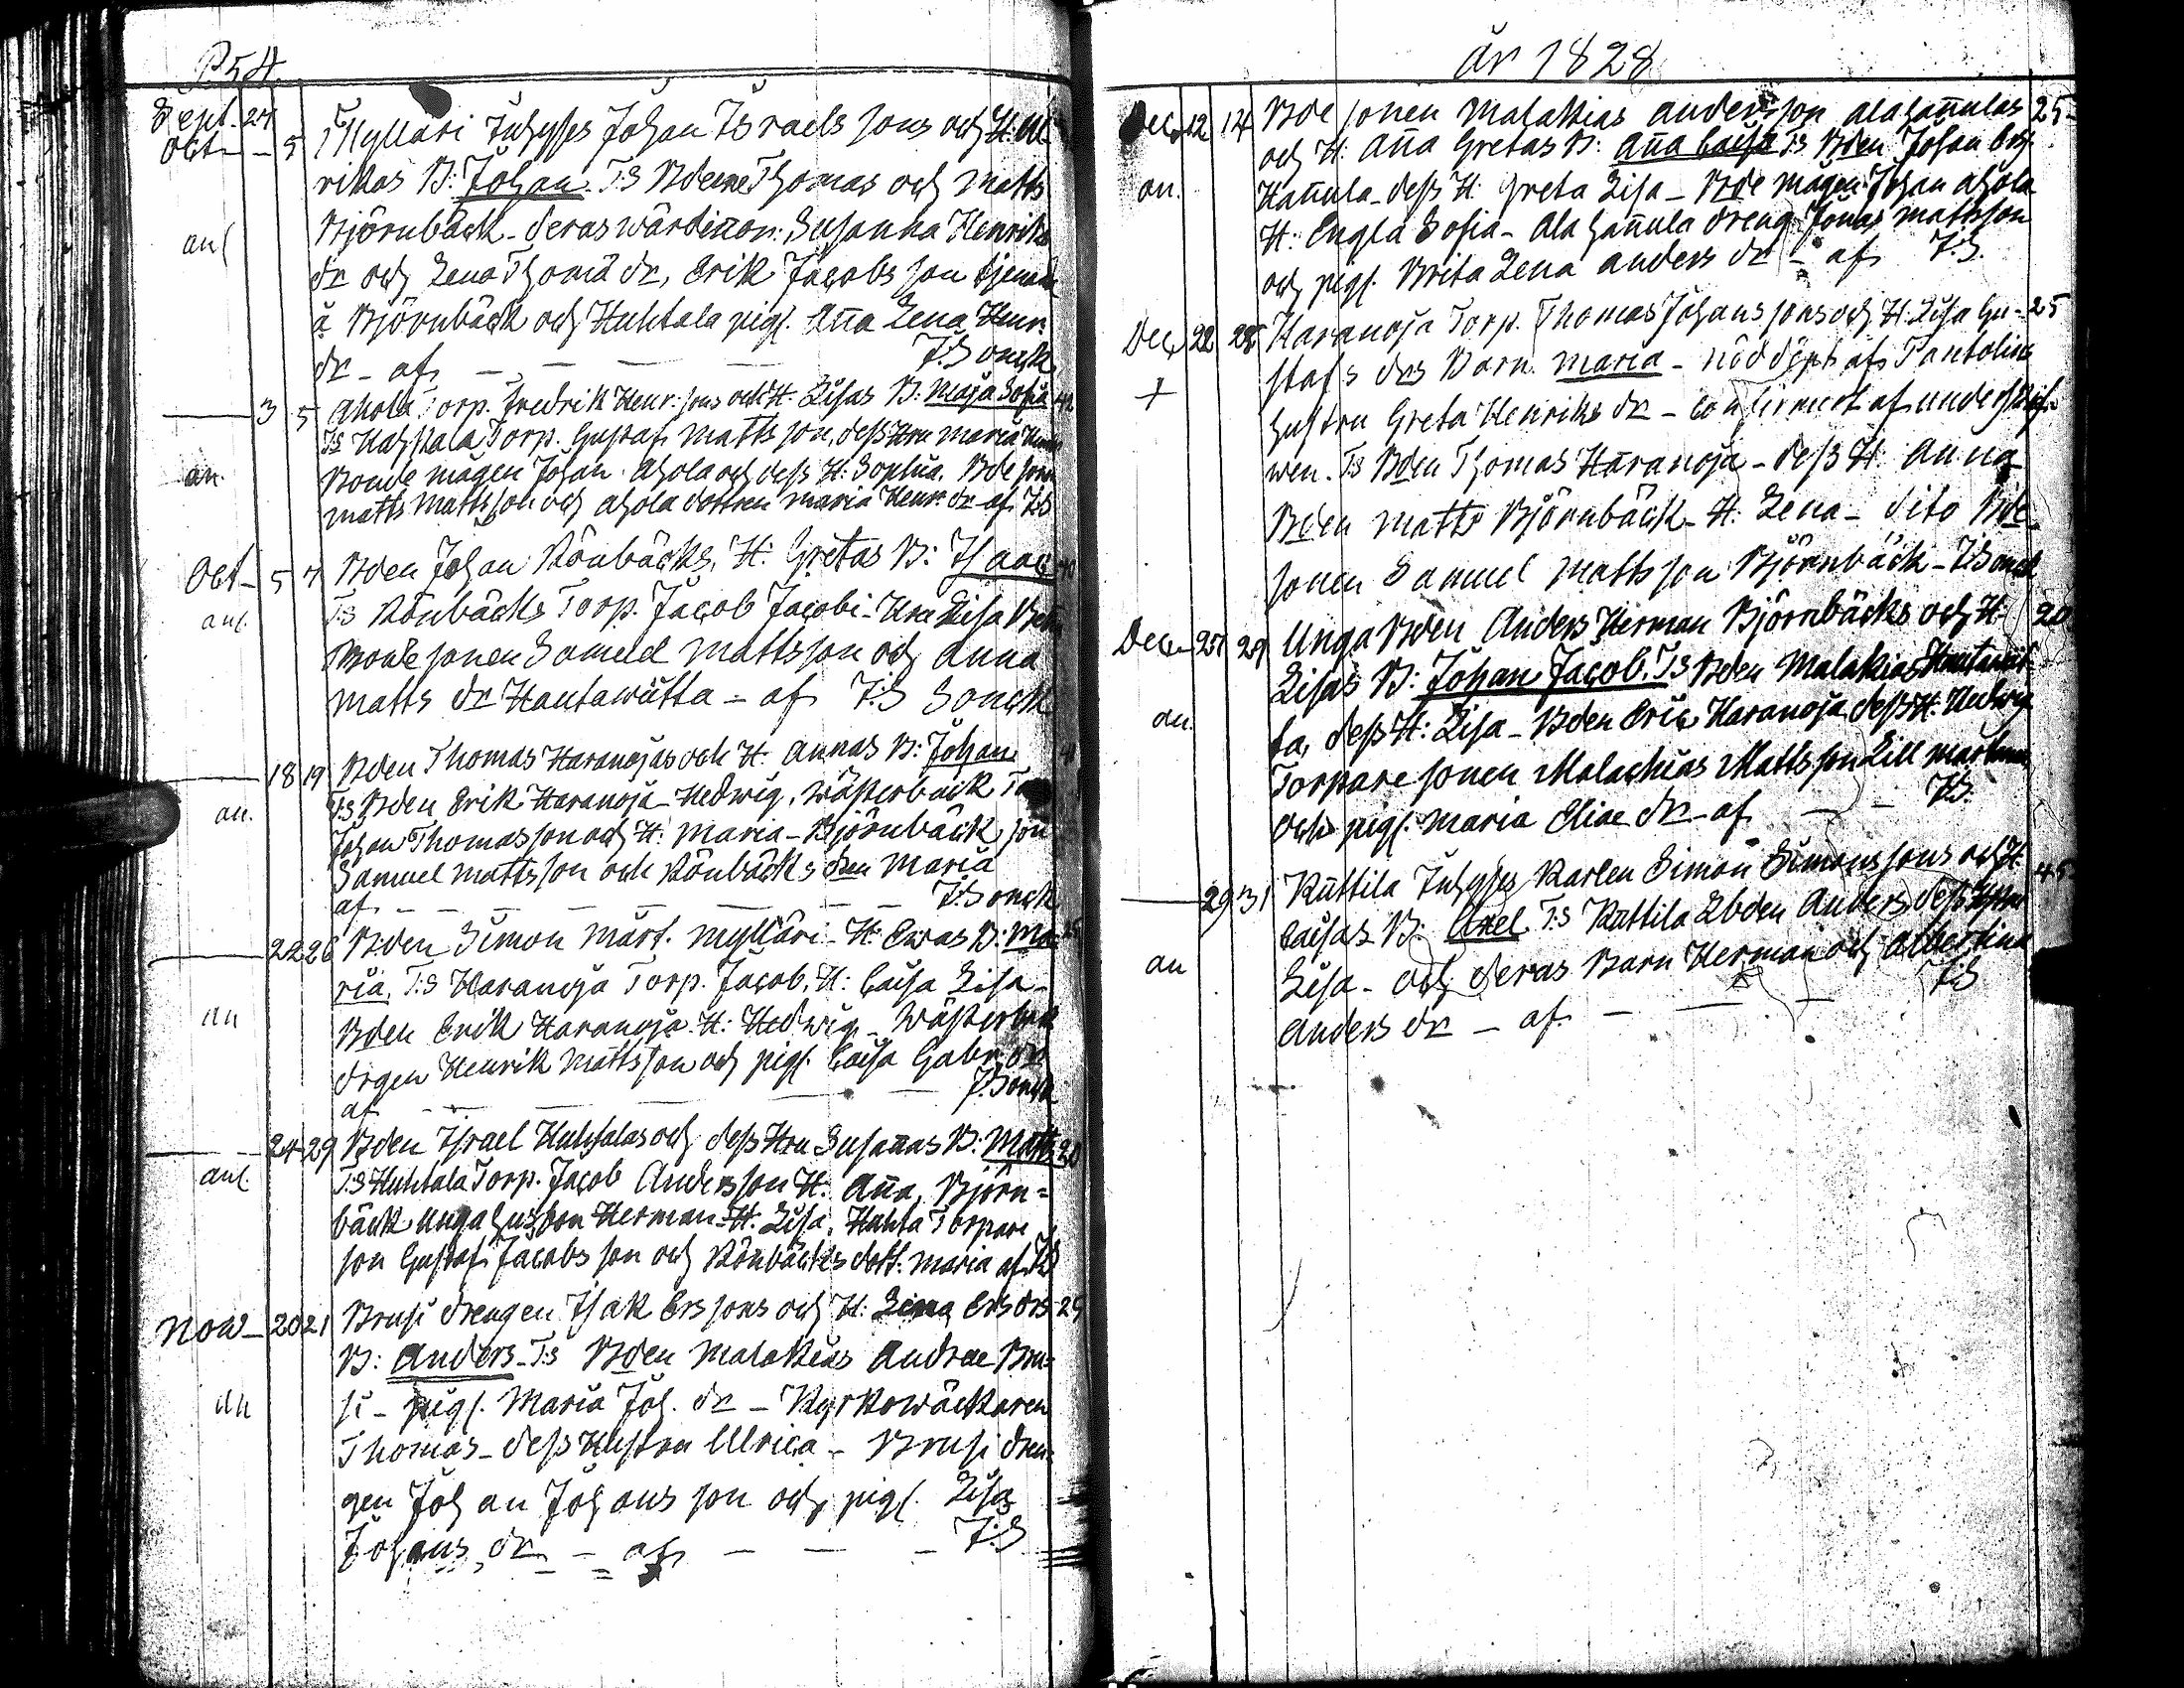 P 54.
Sept. 27
Oct - - 5 Mylläri Inhyses Johan Israels sons och H: Ul-
rikas B: Johan. T:S Bderne Thomas och Matts
anl Björnbäck - deras wärdinnor: Susanna Henriks
dr och Lena Thomä dr, Erik Jacobs son tjenande
å Björnbäck och Huhtala pigs. Aña Lena Henr.
dr - af - - - - J:Sonck
3 5 Ahola Torp. Fredrik Henr: sons och H: Lisas B: Maja Sofia
Ts Torp. Gustaf Matts son, dess Hru Maria
an. Bonde mågen Johan Ahola och dess H: Sophia. Bde sonen
Matts Matts son och Ahola dottren Maria Henr. dr - af JS
Oct - 5 7 Bden Johan Rönbäcks, H: Gretas B: Isaac
anl. T:S Rönbäcks Torp. Jacob Jacobi - Hru Lisa
Bonde sonen Samuel Matts son och Anna
Matts dr Hautawiitta - af J:S Sonck
18 19 Bden Thomas Haranojas och H. Annas B: Johan
an. T:S Bden Erik Haranoja - Hedwig, Wästerback
Johan Thomas son och H: Maria - Björnbäck son
Samuel Matts son och Rönbäcks dren Maria
af - - - - - J:Sonck
22 26 Bden Simon Märt. Mylläri - H: Ewas B: Ma- 25
ria, T:S Haranoja Torp. Jacob, H: Caisa Lisa -
an Bden Erik Haranoja H: Hedwig - Wästerback
drgen Henrik Matts son och pigs. Caisa Gabr. dr
af - - - - J:Sonck
24 29 Bden Israel Huhtalas och dess Hru Susañas B: Matts 20
anl. T:S Huhtala Torp. Jacob Anders son H: Aña, Björn-
bäck unga husbon Herman - H: Lisa, Huhta Torpare
son Gustaf Jacobs son och Rönbäcks dott. Maria af JS
Now - 20 21 Brusi drengen Isak Ers sons och H: Lena Ers drs 25
B: Anders - T:s Bden Malakias Andreae Bru-
an si - pigs. Maria Joh. dr - Kyrkowäckaren
Thomas - dess Hustru Ulrica - Brusi dren-
gen Johan Johans son och pigs. Lisa
Johans dr - af - - - J:S
år 1828
Dec 12 14 Bde sonen Malakias Anders son Alahañulas 25
och H: Aña Gretas B: Aña Caisa Ts Bden Johan
an. Hañula - dess H: Greta Lisa - Bde mågen Johan Ahola
H: Engla Sofia - Ala hañula dreng Jonas Mattsson
och pigs. Brita Lena Anders dr - af J.S.
Dec 22 28 Haranoja Torp. Thomas Johans sons och H: Lisa Gu- 25
stafs drs Barn Maria - nöddöpt af Pantolins
+ hustru Greta Henriks dr - confirmert af
wen. Ts Bden Thomas Haranoja - dess H: Anna
Bden Matts Björnbäck - H: Lena - dito Bde
sonen Samuel Matts son Björnbäck - J:Sonck
Dec - 27 29 Unga Bden Anders Herman Björnbäcks och H: 20
Lisas B: Johan Jacob. T:S Bden Malakias Hautawiit-
an. ta, dess H: Lisa - Bden Eric Haranoja dess H: Hedwig
Torpare sonen Malachias Matts son Lill
och pigs. Maria Eliae dr - af - - J:S.
29 31 Ruttila Inhyses Karlen Simon Simons sons och H: 45
Caisas B: Axel T:S Ruttila Ebden Anders dess hustru
an Lisa - och deras Barn Herman och Albertina
Anders dr - af - - - J:S